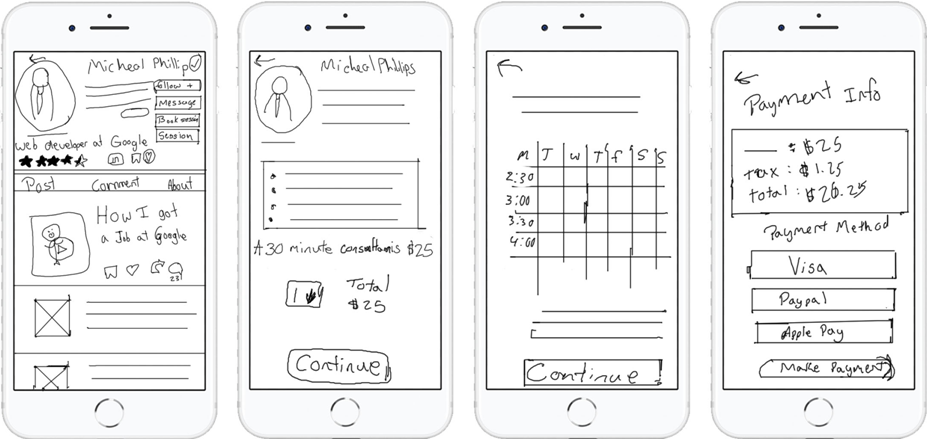 Micheal Phillip
follow +
Message
Book session
Session
web developer at Google
in
Post Comment About
How I got
a Job at Google
23
Micheal Phillips
A 30 minute consultanis $25
1 Total
$25
Continue
M T W T f S S
2:30
3:00
3:30
4:00
Continue
Payment Info
: $25
tax : $1.25
total : $26.25
Payment Method
Visa
Paypal
Apple Pay
Make Payment